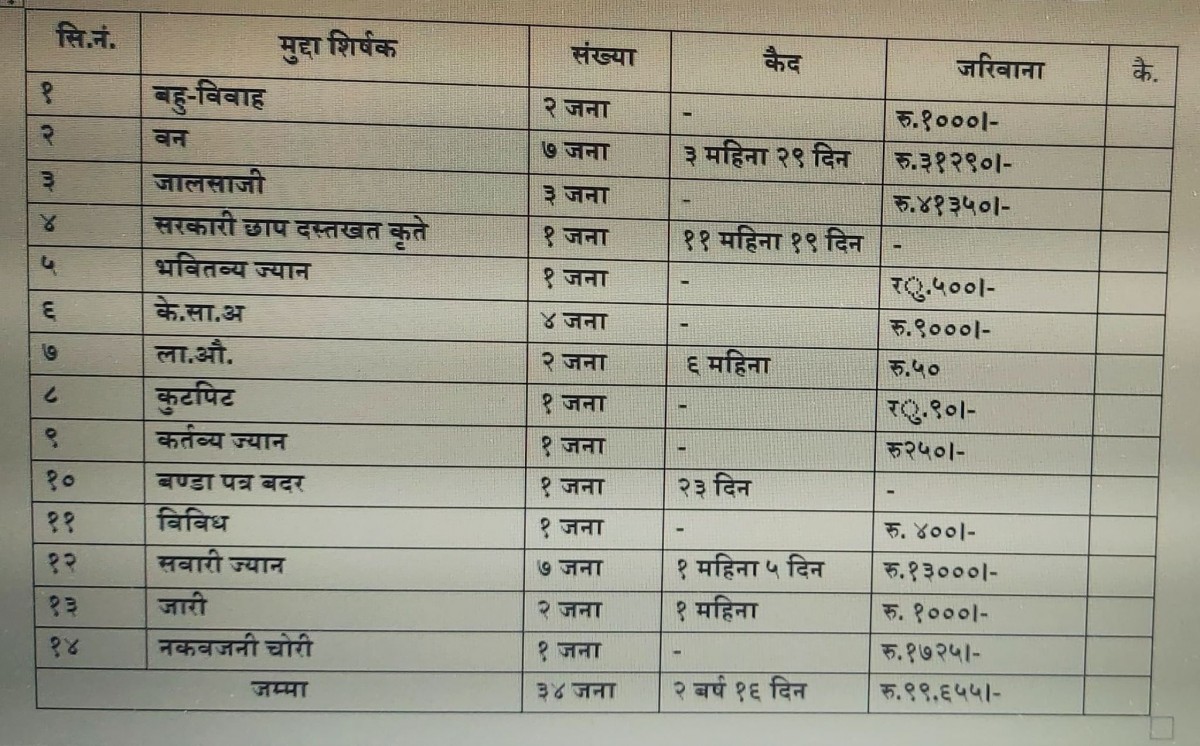 सि.नं. मुद्दा शिर्षक संख्या कैद जरिवाना कै.
१ बहु-विवाह २ जना - रु.१०००।-
२ वन ७ जना ३ महिना २९ दिन रु.३१२९०।-
३ जालसाजी ३ जना - रु.४१३५०।-
४ सरकारी छाप दस्तखत कृते १ जना ११ महिना १९ दिन -
५ भवितव्य ज्यान १ जना - रु.५००।-
६ के.सा.अ ४ जना - रु.९०००।-
७ ला.औ. २ जना ६ महिना रु.५०
८ कुटपिट १ जना - रु.९०।-
९ कर्तव्य ज्यान १ जना - रु२५०।-
१० बण्डा पत्र बदर १ जना २३ दिन -
११ विविध १ जना - रु. ४००।-
१२ सवारी ज्यान ७ जना १ महिना ५ दिन रु.१३०००।-
१३ जारी २ जना १ महिना रु. १०००।-
१४ नकवजनी चोरी १ जना - रु.१७२५।-
जम्मा ३४ जना २ बर्ष १६ दिन रु.९९.६५५।-